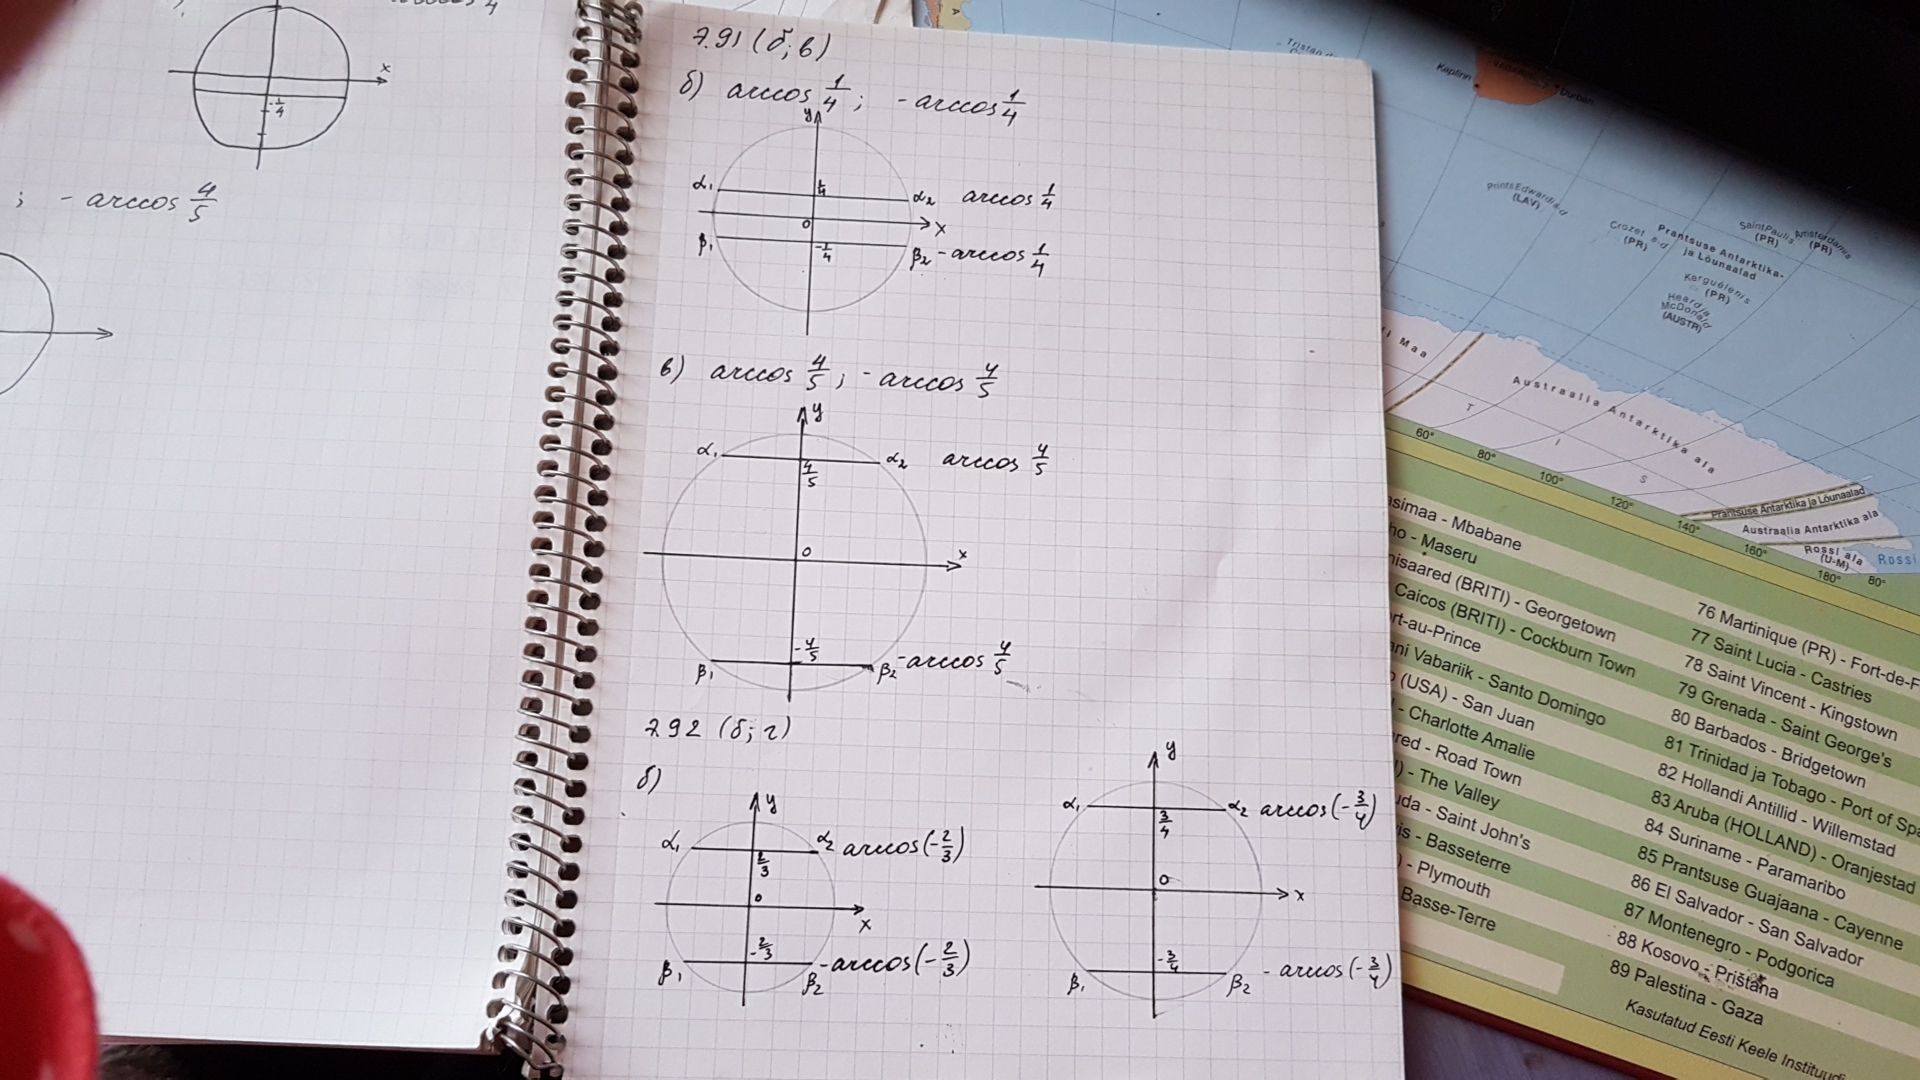 x
-1/4
; - arccos 4/5
7.91 (б; в)
б) arccos 1/4; - arccos 1/4
y
α₁ 1/4 α₂ arccos 1/4
0 x
β₁ -1/4 β₂ - arccos 1/4
в) arccos 4/5; - arccos 4/5
y
α₁ 4/5 α₂ arccos 4/5
0 x
β₁ -4/5 β₂ - arccos 4/5
7.92 (б; г)
б)
y
α₁ 2/3 α₂ arccos(-2/3)
0 x
β₁ -2/3 β₂ - arccos(-2/3)
y
α₁ 3/4 α₂ arccos(-3/4)
0 x
β₁ -3/4 β₂ - arccos(-3/4)
Durban
Prints Edwardi s-d
(LAV)
Crozet' s-d
(PR)
Prantsuse Antarktika-
ja Lõunaalad
Saint Paulis
(PR)
Amsterdamis
(PR)
Kerguélenis
(PR)
Heard ja
McDonald
(AUSTR)
Maa
Austraalia Antarktika ala
T I S
Prantsuse Antarktika ja Lõunaalad
Austraalia Antarktika ala
Rossi ala
(U-M)
Rossi
60° 80° 100° 120° 140° 160° 180° 80°
- Mbabane
- Maseru
(BRITI) - Georgetown
Caicos (BRITI) - Cockburn Town
-au-Prince
Vabariik - Santo Domingo
(USA) - San Juan
- Charlotte Amalie
- Road Town
- The Valley
- Saint John's
- Basseterre
- Plymouth
Basse-Terre
76 Martinique (PR) - Fort-de-F
77 Saint Lucia - Castries
78 Saint Vincent - Kingstown
79 Grenada - Saint George's
80 Barbados - Bridgetown
81 Trinidad ja Tobago - Port of Spa
82 Hollandi Antillid - Willemstad
83 Aruba (HOLLAND) - Oranjestad
84 Suriname - Paramaribo
85 Prantsuse Guajaana - Cayenne
86 El Salvador - San Salvador
87 Montenegro - Podgorica
88 Kosovo - Priština
89 Palestina - Gaza
Kasutatud Eesti Keele Instituudi